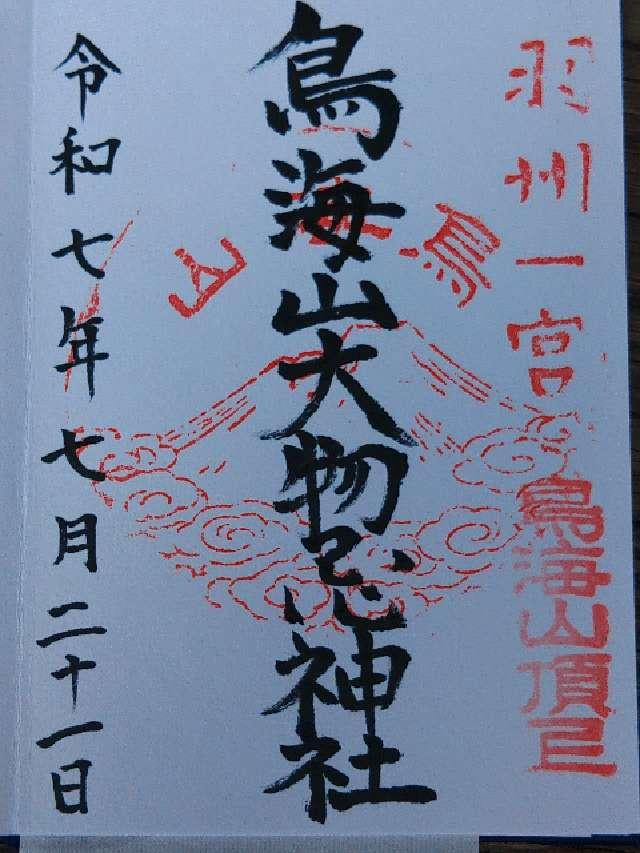 羽州一宮
鳥海山頂
鳥海山
鳥海山大物忌神社
令和七年七月二十一日